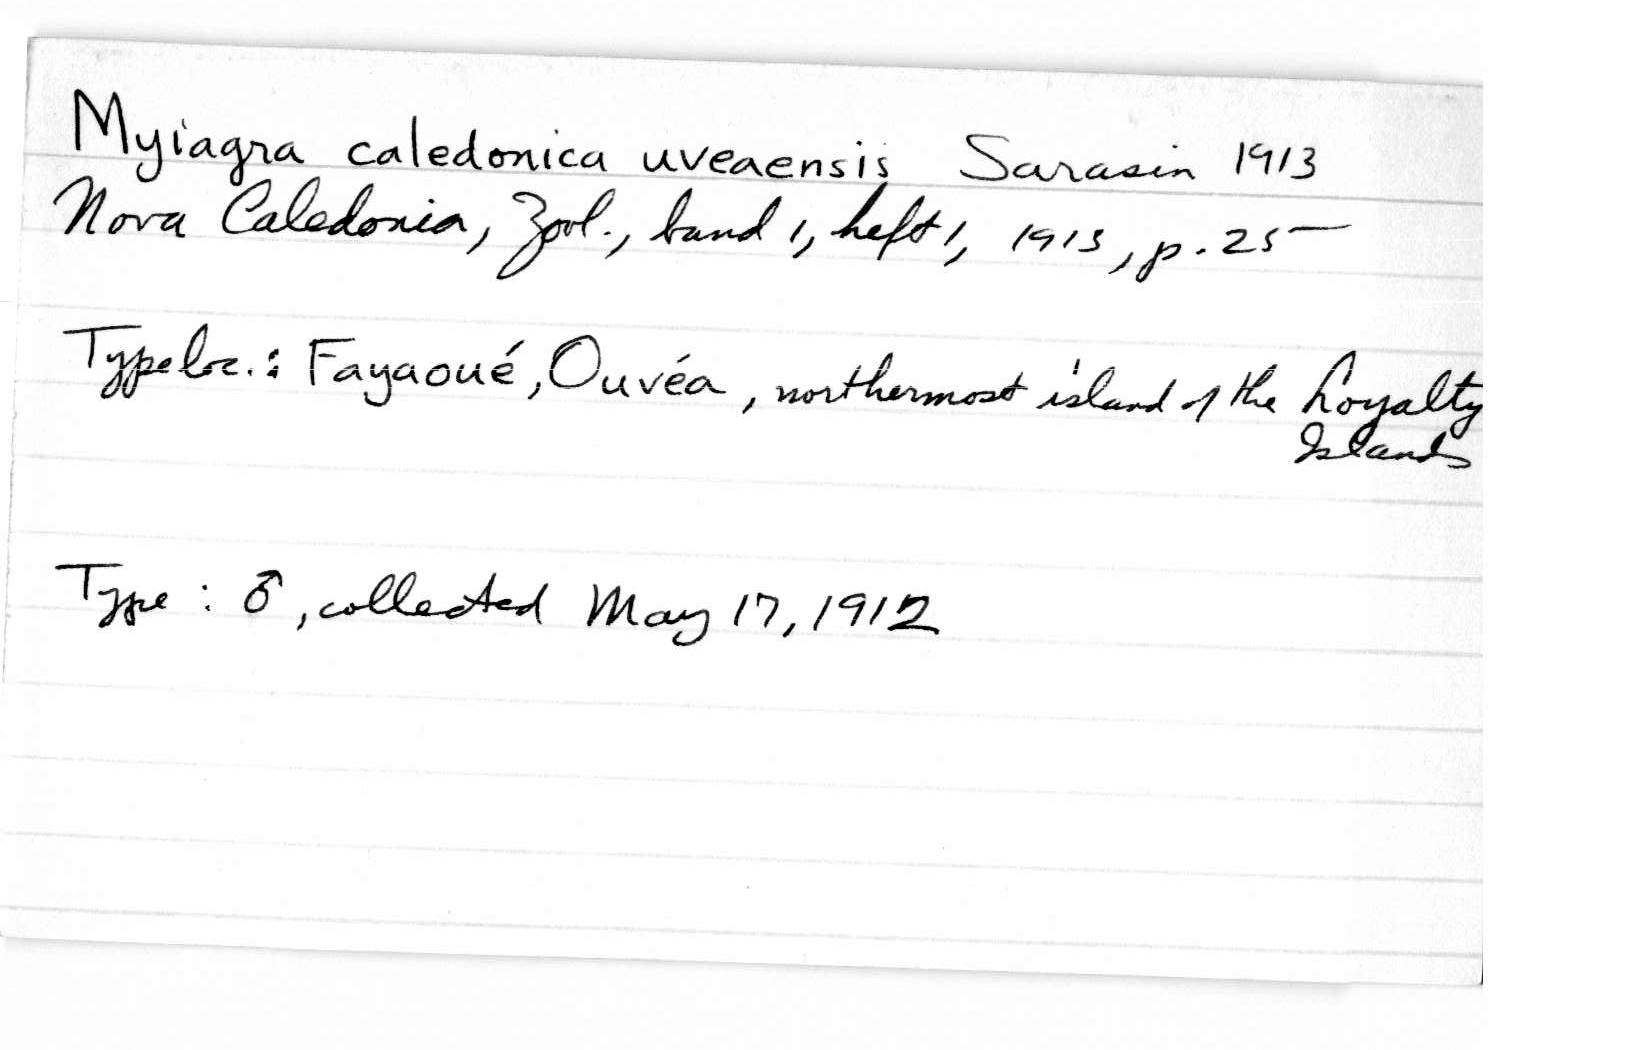 Myiagra caledonica uveaensis Sarasin 1913
Nova Caledonia, Zool., band 1, heft 1, 1913, p. 25
Type loc.: Fayaoué, Ouvéa, northermost island of the Loyalty
Islands
Type: ♂, collected May 17, 1912